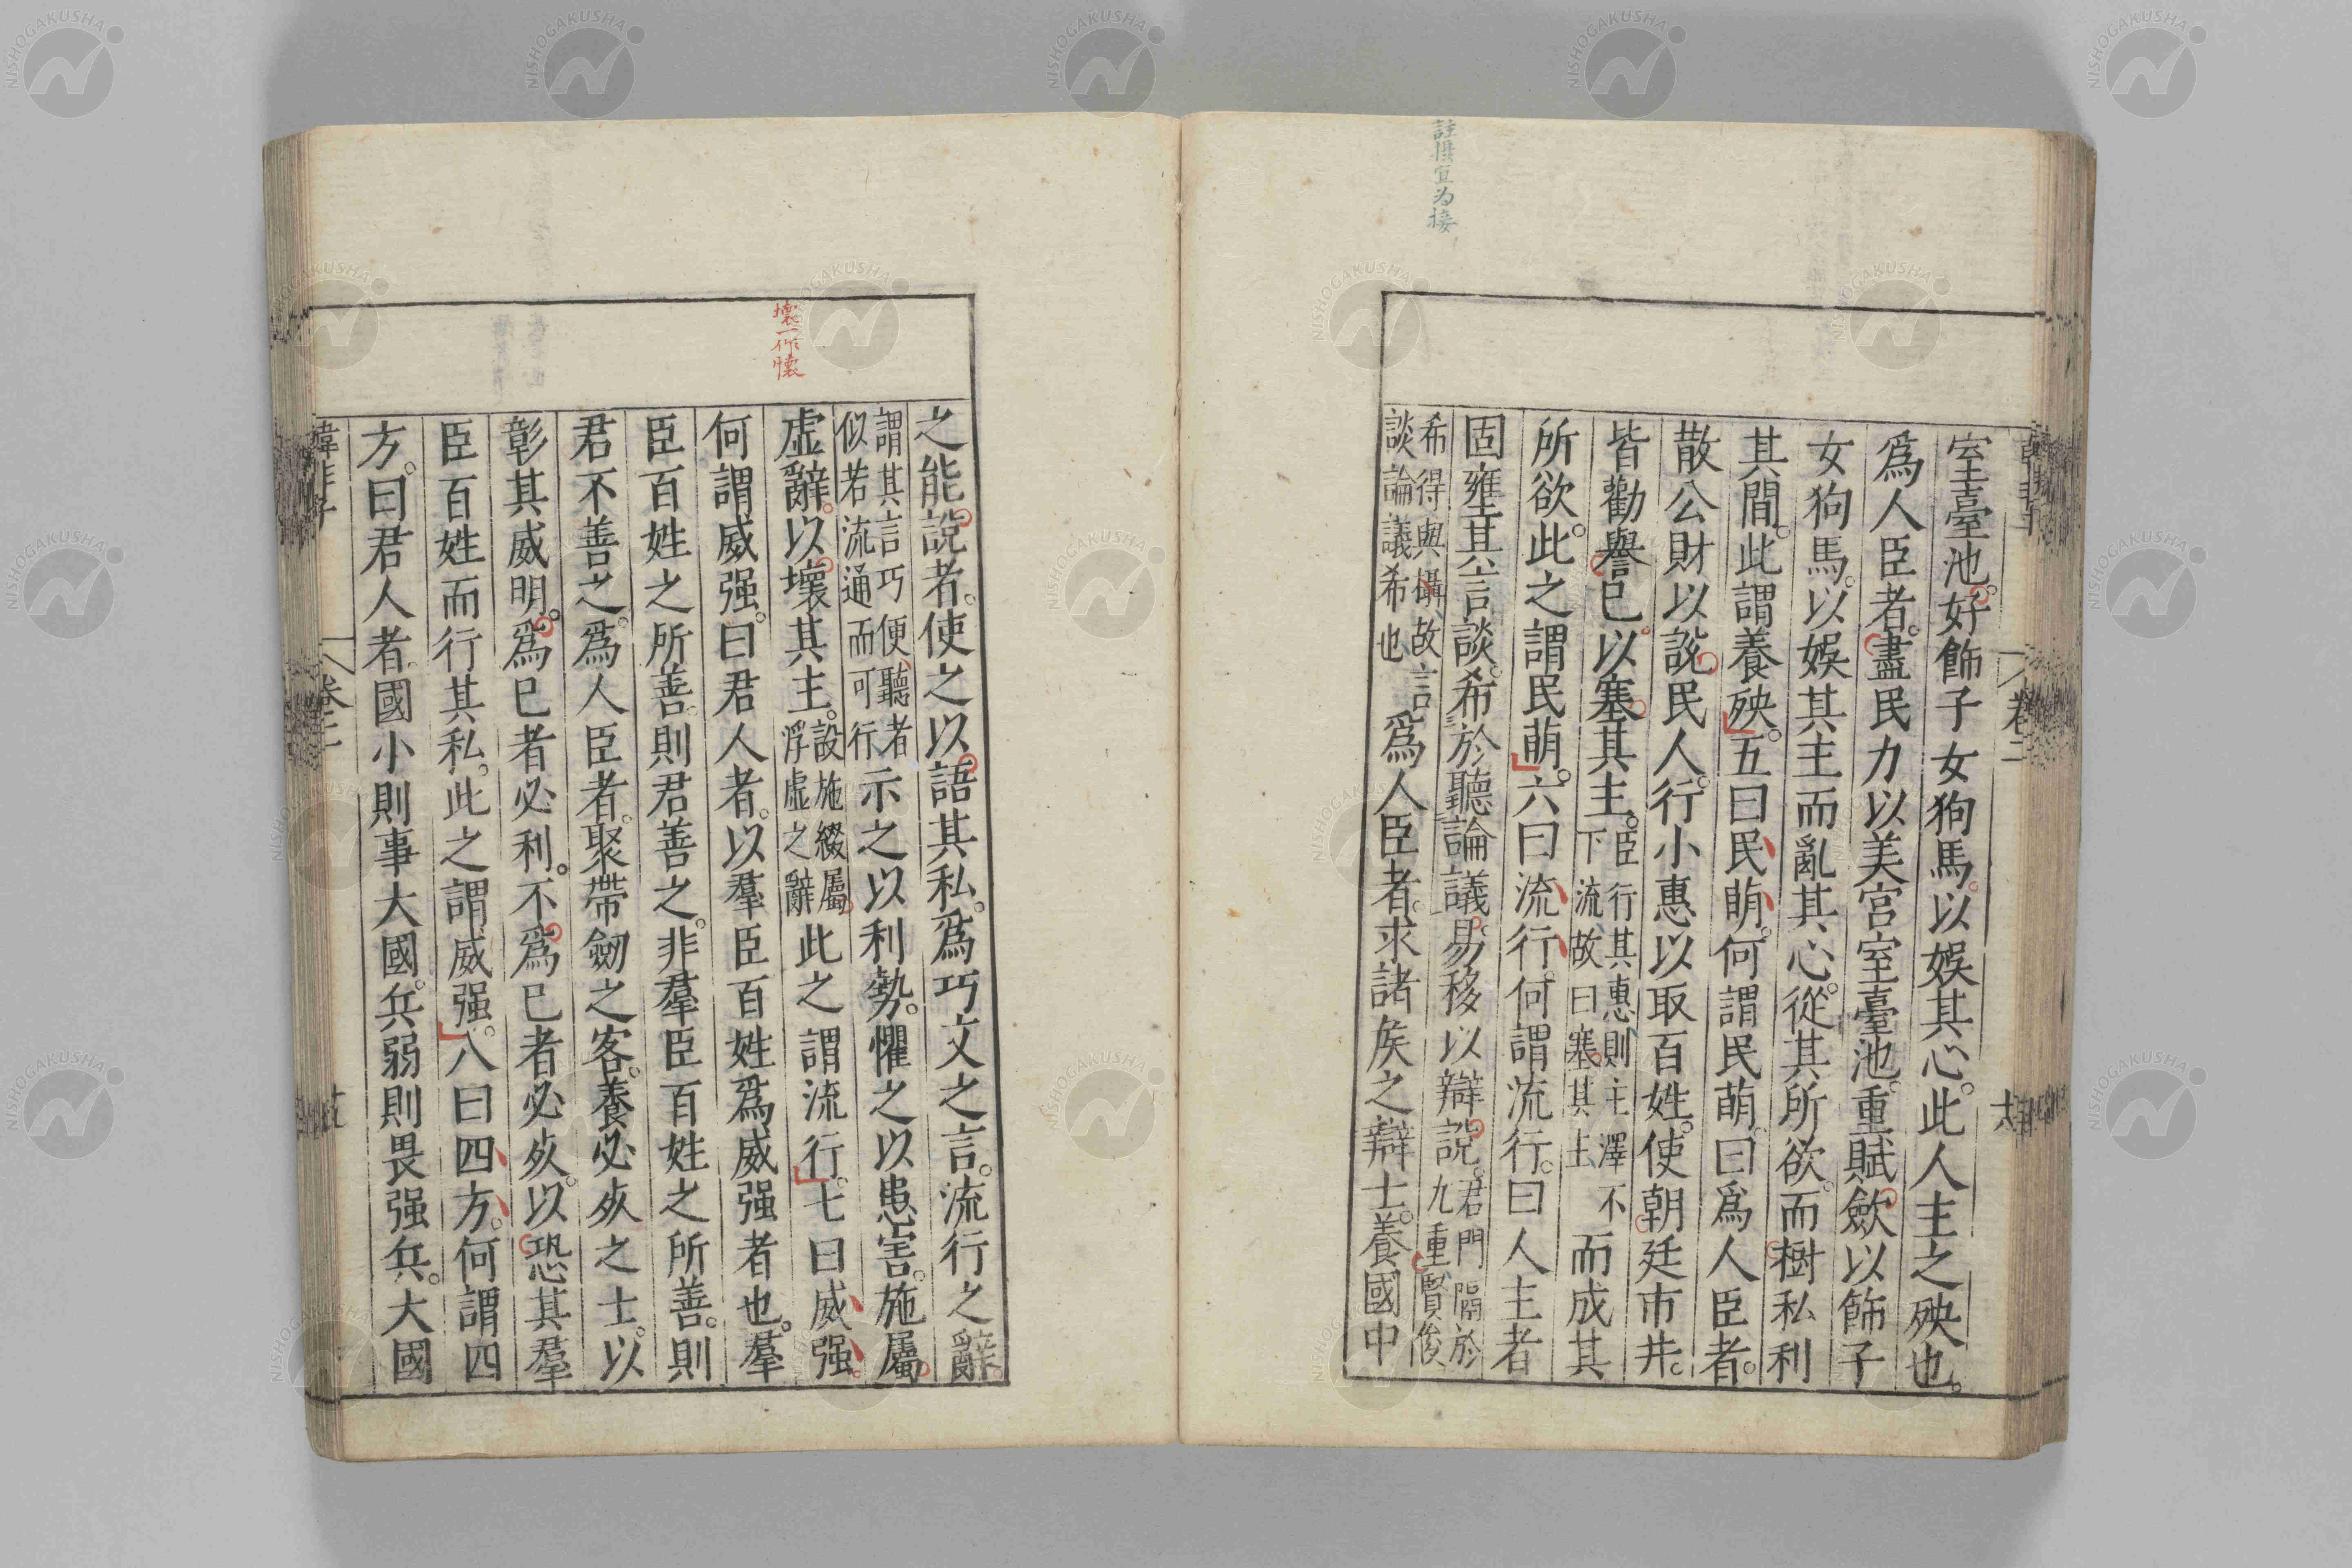 註攝宜为接
室臺池。好飾子女狗馬。以娛其心。此人主之殃也。
爲人臣者。盡民力以美宮室臺池。重賦歛以飾子
女狗馬。以娛其主而亂其心。從其所欲。而樹私利
其間。此謂養殃。五曰民萌。何謂民萌。曰爲人臣者。
散公財以說民人。行小惠以取百姓。使朝廷市井。
皆勸譽已以塞其主。臣行其惠則主澤不下流、故曰塞其主、而成其
所欲。此之謂民萌。六曰流行。何謂流行。曰人主者
固壅其言談。希於聽論議。易移以辯說。君門隔於九重、賢俊
希得與攝故言談論議希也爲人臣者。求諸矦之辯士。養國中
壞一作懷
之能說者。使之以語其私。爲巧文之言。流行之辭。
謂其言巧便聽者似若流通而可行示之以利勢。懼之以患害。施屬
虛辭。以壞其主。設施綴屬浮虛之辭此之謂流行。七曰威强。
何謂威强。曰君人者。以羣臣百姓爲威强者也。羣
臣百姓之所善。則君善之。非羣臣百姓之所善。則
君不善之。爲人臣者。聚帶劒之客。養必死之士。以
彰其威明。爲已者必利。不爲已者必死。以恐其羣
臣百姓而行其私。此之謂威强。八曰四方。何謂四
方。曰君人者。國小則事大國。兵弱則畏强兵。大國
韓非子
卷二